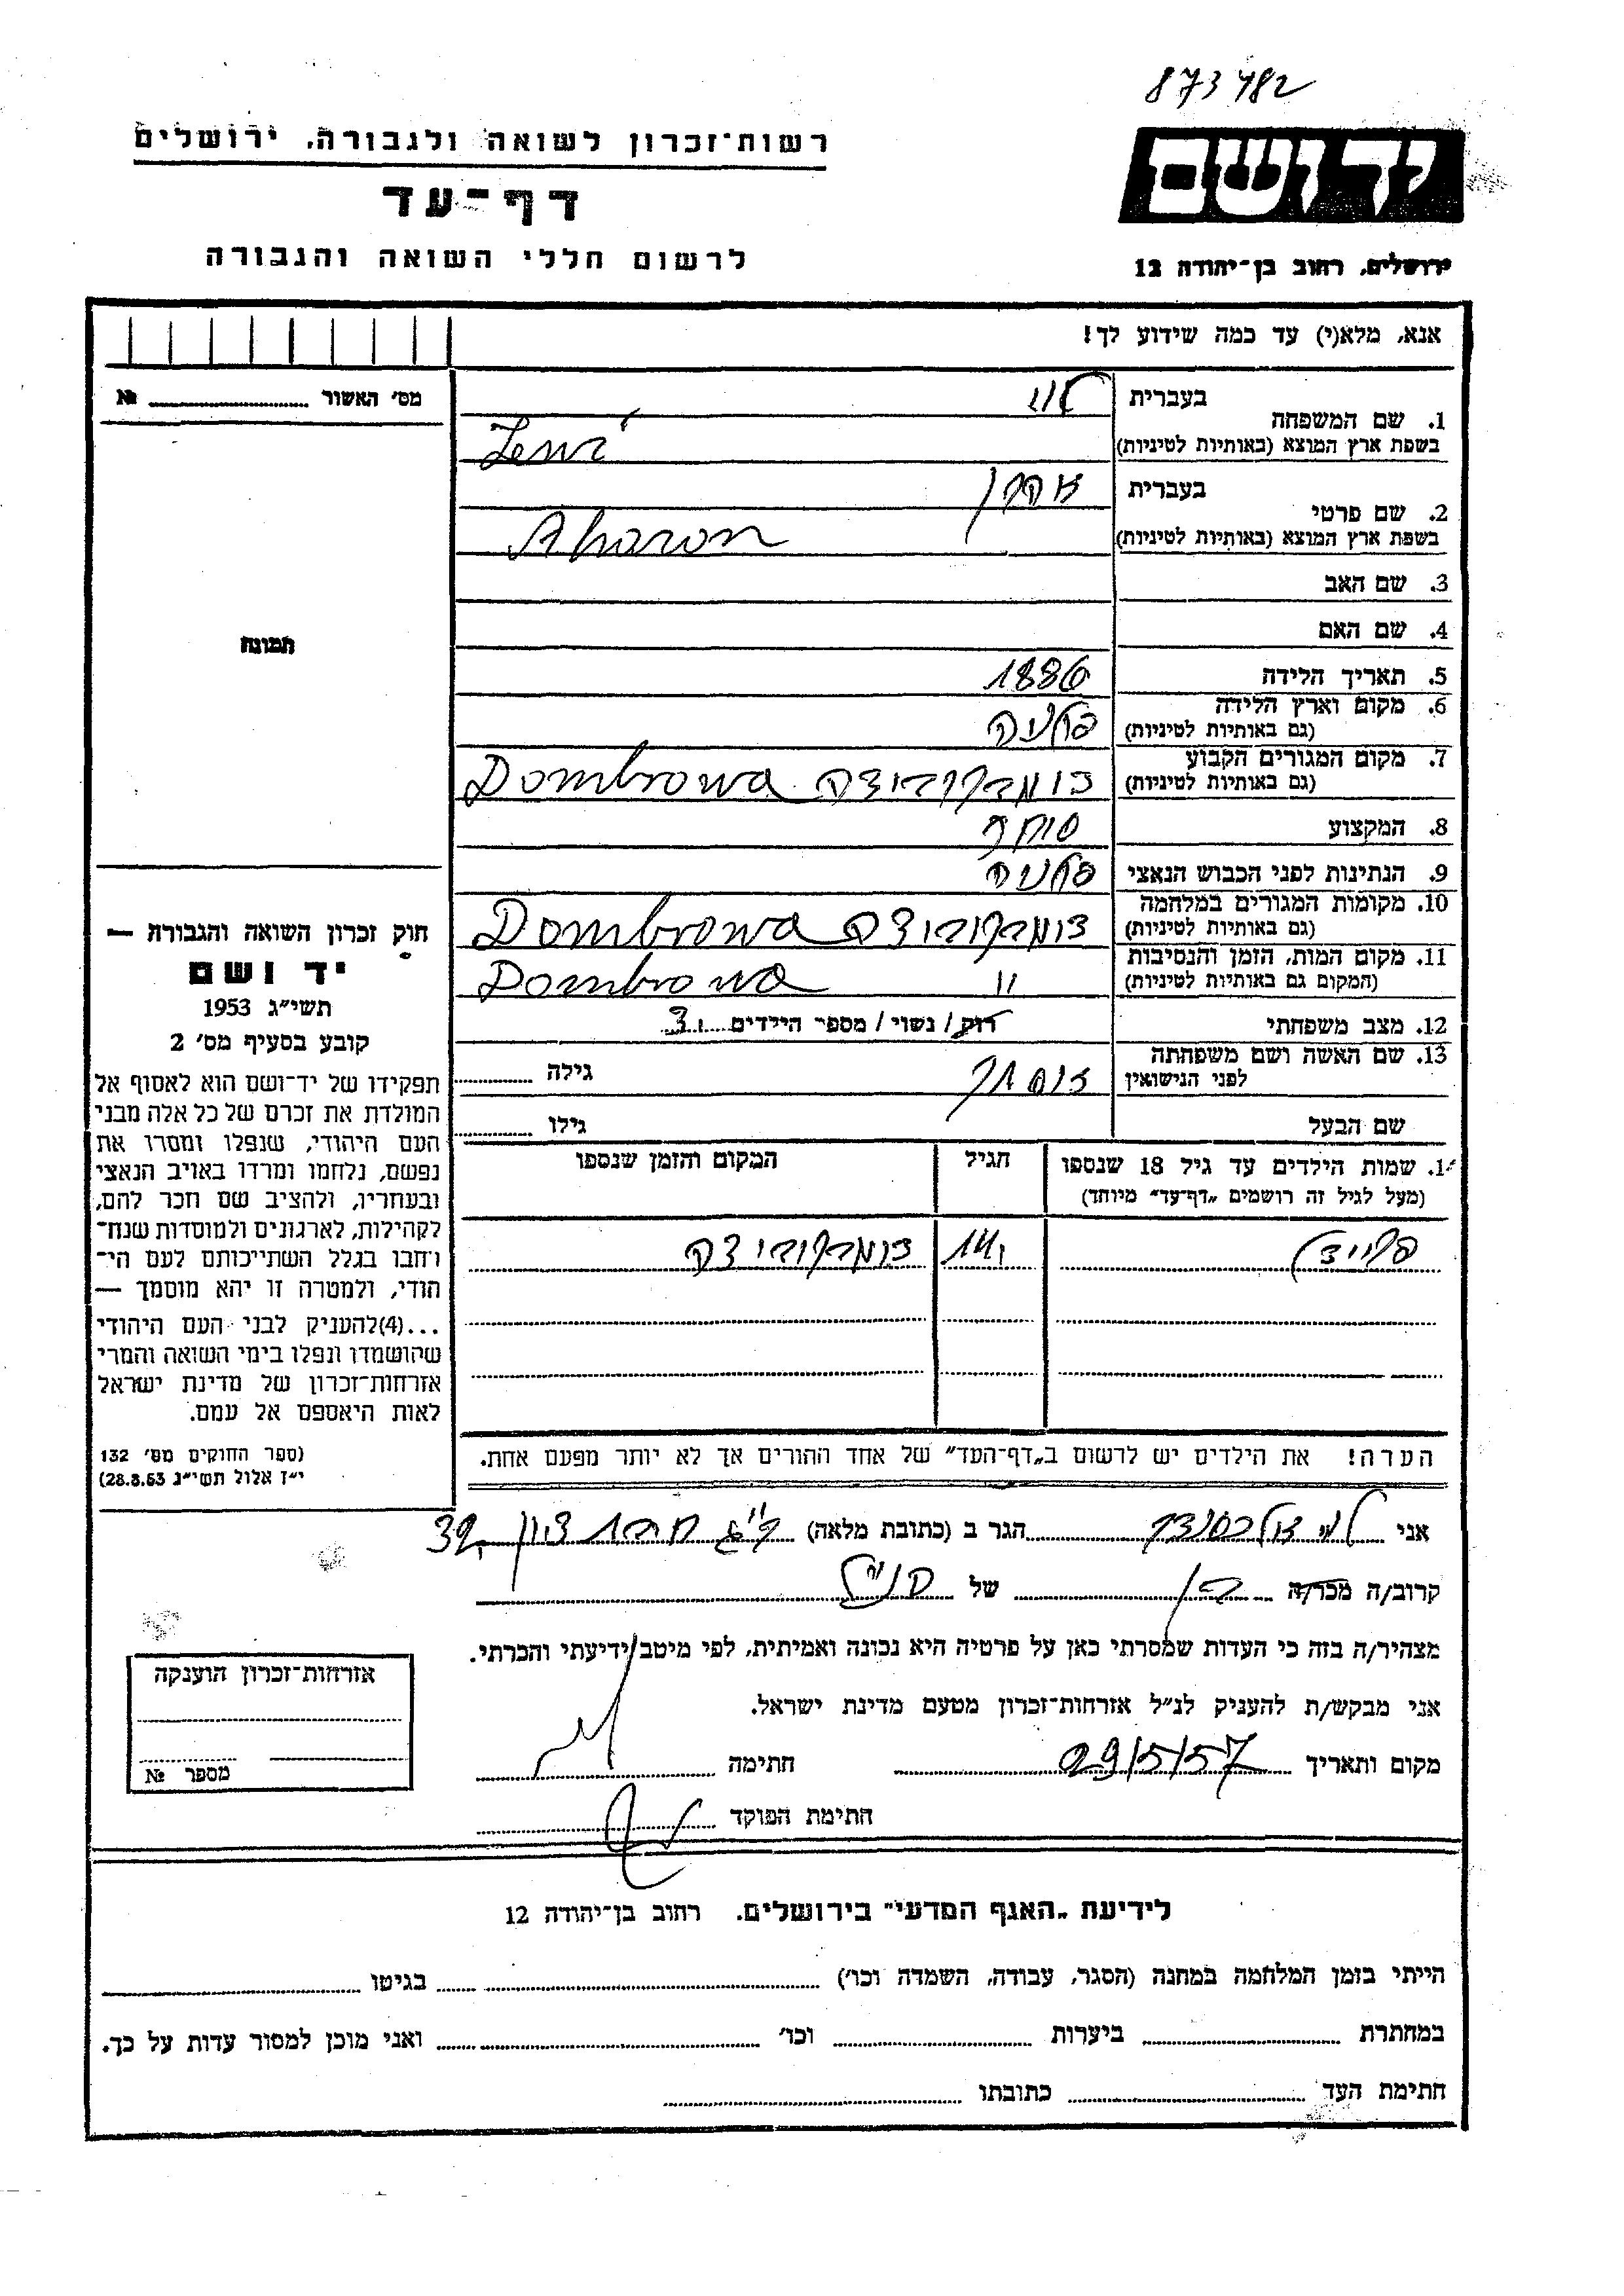 873482
רשות־זכרון לשואה ולגבורה, ירושלים
דף־עד
לרשום חללי השואה והגבורה
יד ושם
ירושלים, רחוב בן־יהודה 12
אנא, מלא(י) עד כמה שידוע לך!
מס׳ האשור № 
1. שם המשפחה בעברית לוי
בשפת ארץ המוצא (באותיות לטיניות) Lewi
2. שם פרטי בעברית אהרן
בשפת ארץ המוצא (באותיות לטיניות) Aharon
3. שם האב
4. שם האם
תמונה
5. תאריך הלידה 1886
6. מקום וארץ הלידה (גם באותיות לטיניות) פולניה
7. מקום המגורים הקבוע (גם באותיות לטיניות) דומברוביצה Dombrowa
8. המקצוע סוחר
9. הנתינות לפני הכבוש הנאצי פולניה
10. מקומות המגורים במלחמה (גם באותיות לטיניות) דומברוביצה Dombrowa
11. מקום המות, הזמן והנסיבות (המקום גם באותיות לטיניות) " Dombrowa
12. מצב משפחתי רוק / נשוי / מספר הילדים 3
13. שם האשה ושם משפחתה לפני הנישואין אסתר גילה
שם הבעל גילו
14. שמות הילדים עד גיל 18 שנספו (מעל לגיל זה רושמים „דף־עד״ מיוחד) הגיל המקום והזמן שנספו
14 דומברוביצה
חוק זכרון השואה והגבורה —
יד ושם
תשי״ג 1953
קובע בסעיף מס׳ 2
תפקידו של יד־ושם הוא לאסוף אל
המולדת את זכרם של כל אלה מבני
העם היהודי, שנפלו ומסרו את
נפשם, נלחמו ומרדו באויב הנאצי
ובעוזריו, ולהציב שם וזכר להם,
לקהילות, לארגונים ולמוסדות שנח־
רבו בגלל השתייכותם לעם הי־
הודי, ולמטרה זו יהא מוסמך —
...(4)להעניק לבני העם היהודי
שהושמדו ונפלו בימי השואה והמרי
אזרחות־זכרון של מדינת ישראל
לאות היאספם אל עמם.
(ספר החוקים מס׳ 132
י״ז אלול תשי״ג 28.8.53)
הערה! את הילדים יש לרשום ב„דף־העד״ של אחד ההורים אך לא יותר מפעם אחת.
אני לוי אלכסנדר הגר ב (כתובת מלאה) חיבת ציון 39
קרוב/ה מכר/ה בן של הנ״ל
מצהיר/ה בזה כי העדות שמסרתי כאן על פרטיה היא נכונה ואמיתית, לפי מיטב ידיעתי והכרתי.
אני מבקש/ת להעניק לנ״ל אזרחות־זכרון מטעם מדינת ישראל.
מקום ותאריך 29/5/57 חתימה
חתימת הפוקד
אזרחות־זכרון הוענקה
מספר №
לידיעת „האגף המדעי״ בירושלים, רחוב בן־יהודה 12
הייתי בזמן המלחמה במחנה (הסגר, עבודה, השמדה וכו׳) בגיטו
במחתרת ביערות וכו׳ ואני מוכן למסור עדות על כך.
חתימת העד כתובתו